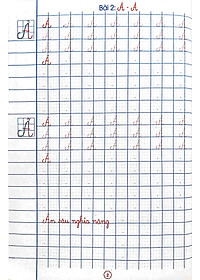 Bài 2: Ă - Â
Ă Ă Ă Ă Ă Ă Ă Ă
Ă Ă Ă Ă Ă Ă Ă
Ă Ă Ă Ă Ă Ă Ă
Ă
Â Â Â Â Â Â Â Â
Â Â Â Â Â Â Â
Â Â Â Â Â Â Â
Â
Ân sâu nghĩa nặng
2